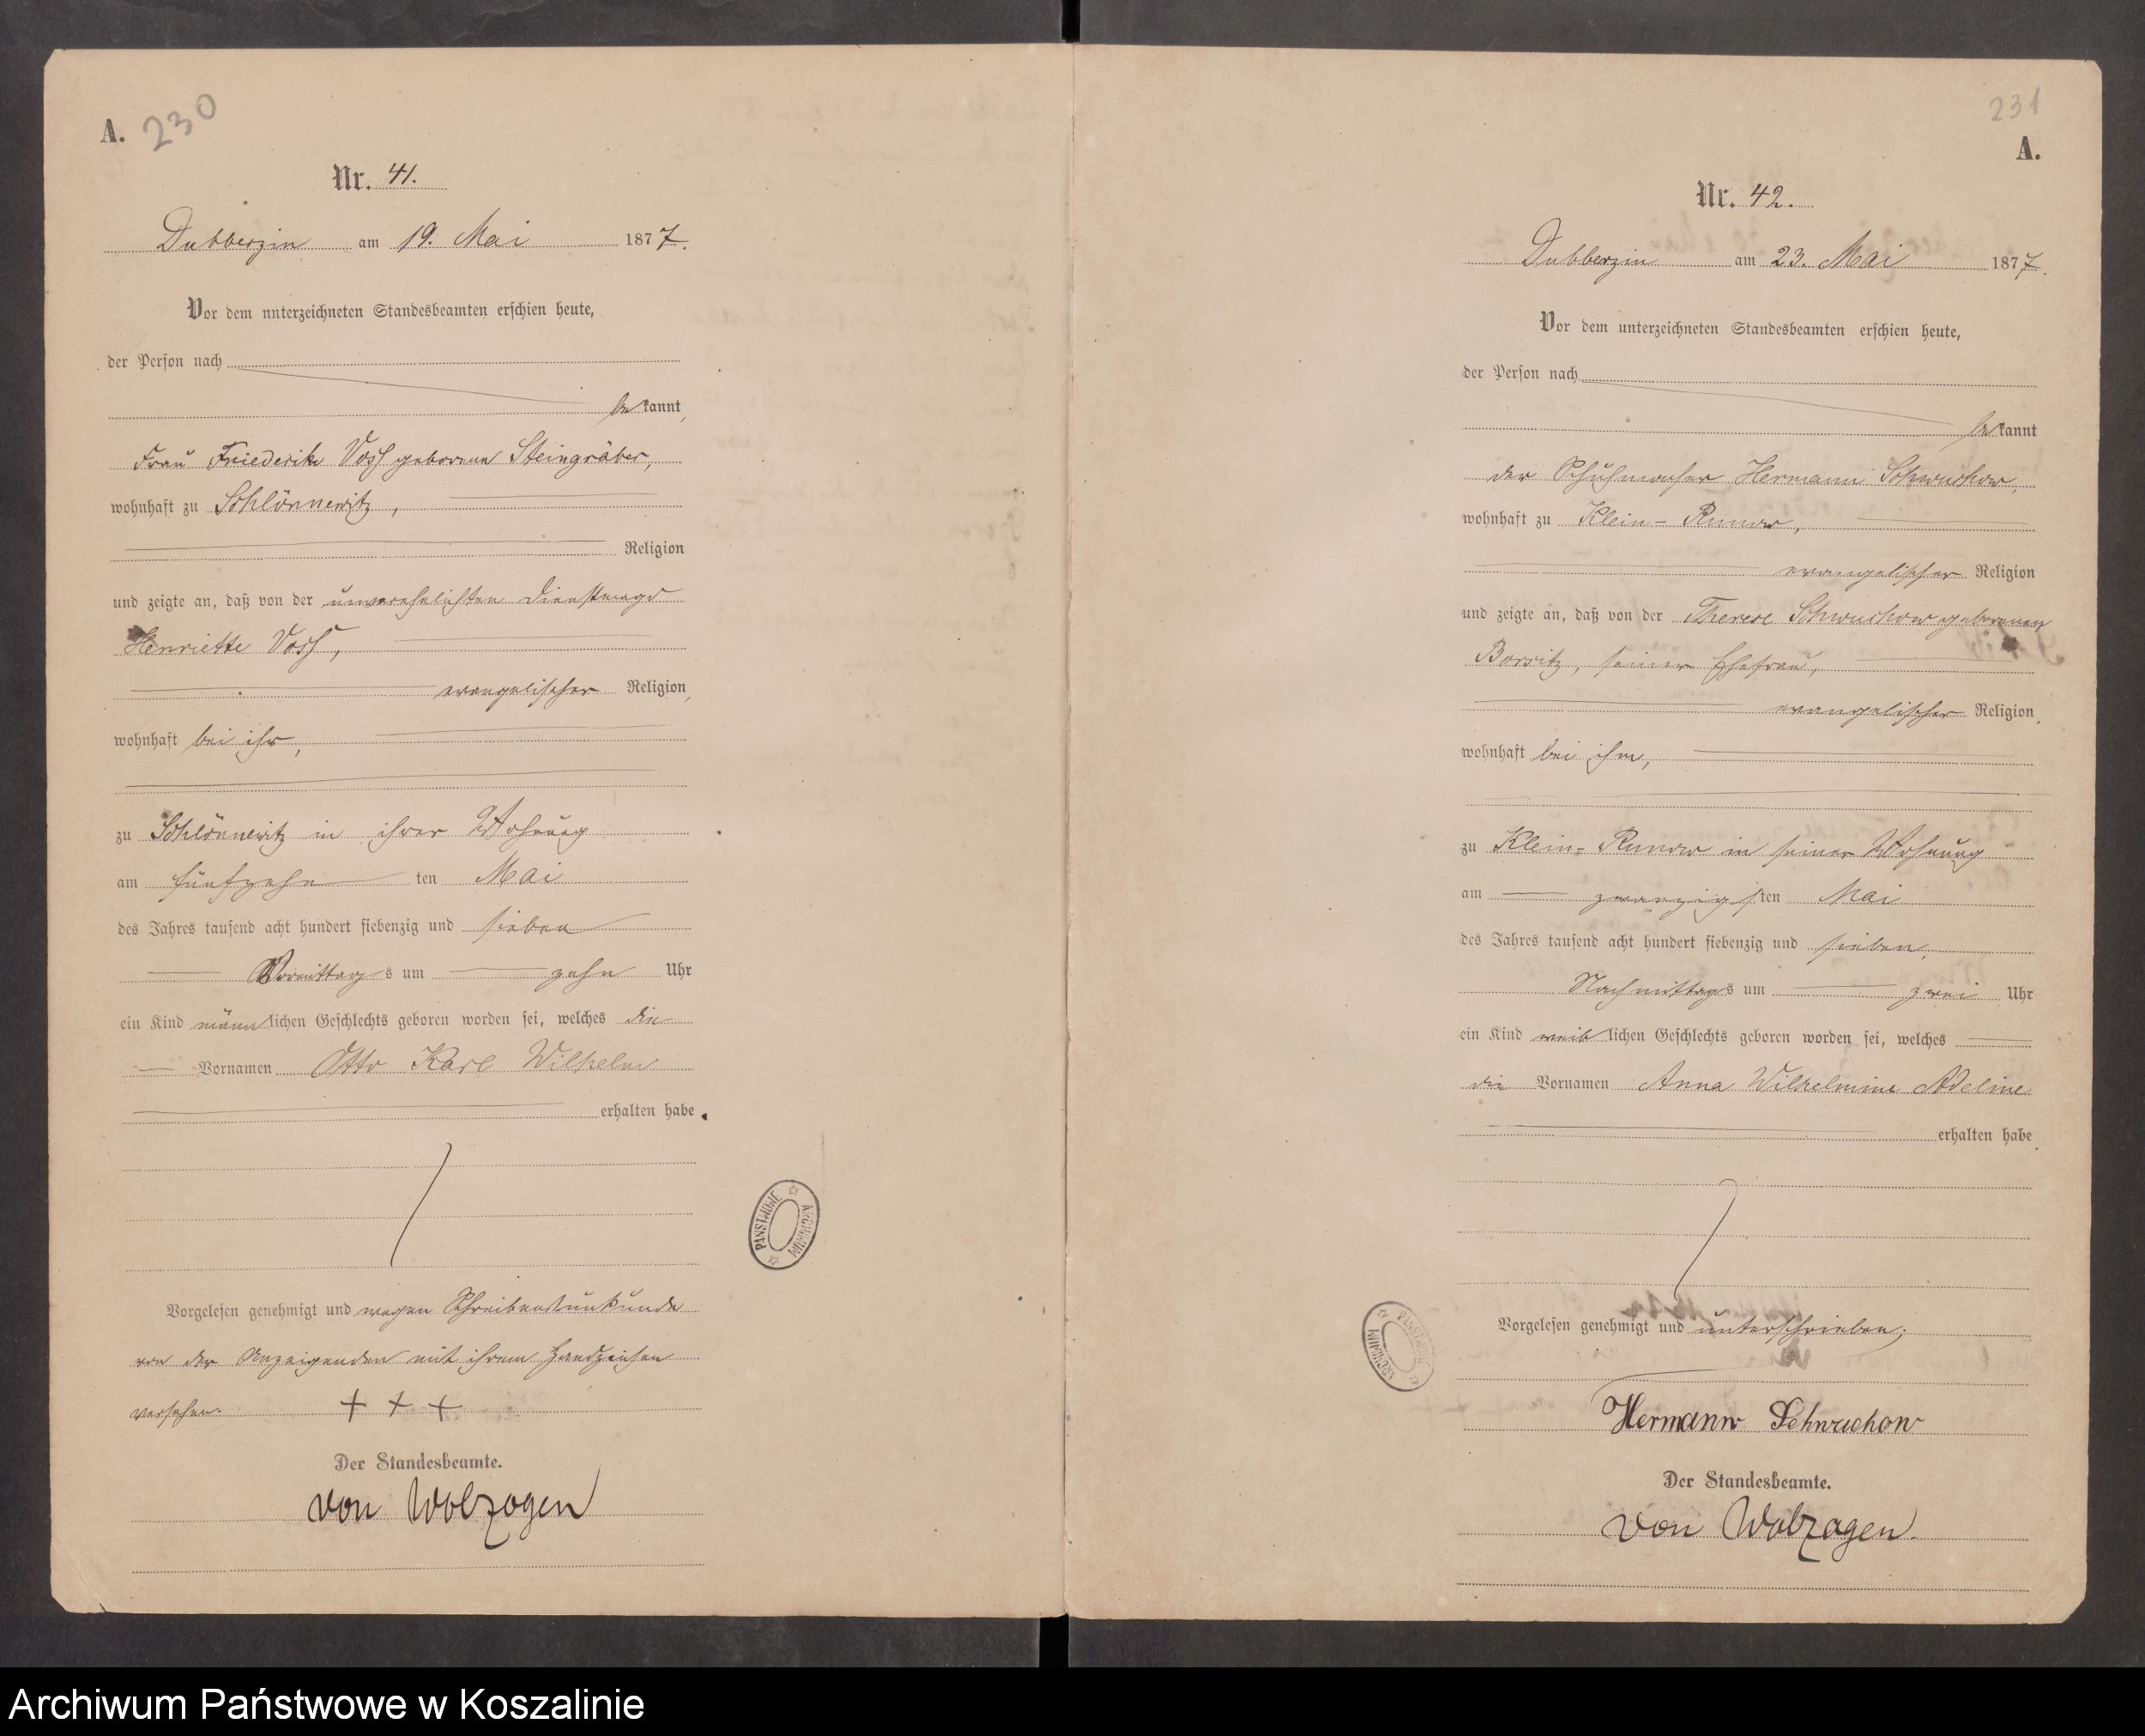 A. 230
Nr. 41.
Dubberzin am 19. Mai 1877.
Vor dem unterzeichneten Standesbeamten erschien heute,
der Person nach
bekannt,
Frau Friederike Voss geborene Steingräber,
wohnhaft zu Schlönnewitz,
Religion
und zeigte an, daß von der unverehelichten Dienstmagd
Henriette Voss,
evangelischer Religion,
wohnhaft bei ihr,
zu Schlönnewitz in ihrer Wohnung
am fünfzehn ten Mai
des Jahres tausend acht hundert siebenzig und sieben
Vormittags um zehn Uhr
ein Kind männlichen Geschlechts geboren worden sei, welches die
Vornamen Otto Karl Wilhelm
erhalten habe.
Vorgelesen genehmigt und wegen Schreibensunkunde
von der Anzeigenden mit ihrem Handzeichen
versehen. + + +
Der Standesbeamte.
von Wolzogen
PAŃSTWOWE ARCHIWUM
231
A.
Nr. 42.
Dubberzin am 23. Mai 1877.
Vor dem unterzeichneten Standesbeamten erschien heute,
der Person nach
bekannt
der Schuhmacher Hermann Schwuchow,
wohnhaft zu Klein-Runow,
evangelischer Religion
und zeigte an, daß von der Therese Schwuchow geborenen
Borsitz, seiner Ehefrau,
evangelischer Religion,
wohnhaft bei ihm,
zu Klein-Runow in seiner Wohnung
am zwanzigsten Mai
des Jahres tausend acht hundert siebenzig und sieben,
Nachmittags um zwei Uhr
ein Kind weiblichen Geschlechts geboren worden sei, welches
die Vornamen Anna Wilhelmine Adeline
erhalten habe.
Vorgelesen genehmigt und unterschrieben;
Hermann Schwuchow
Der Standesbeamte.
von Wolzogen.
PAŃSTWOWE ARCHIWUM
Archiwum Państwowe w Koszalinie